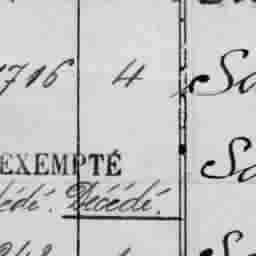 1716 4 Sa
EXEMPTÉ Sa
édé. Décédé.